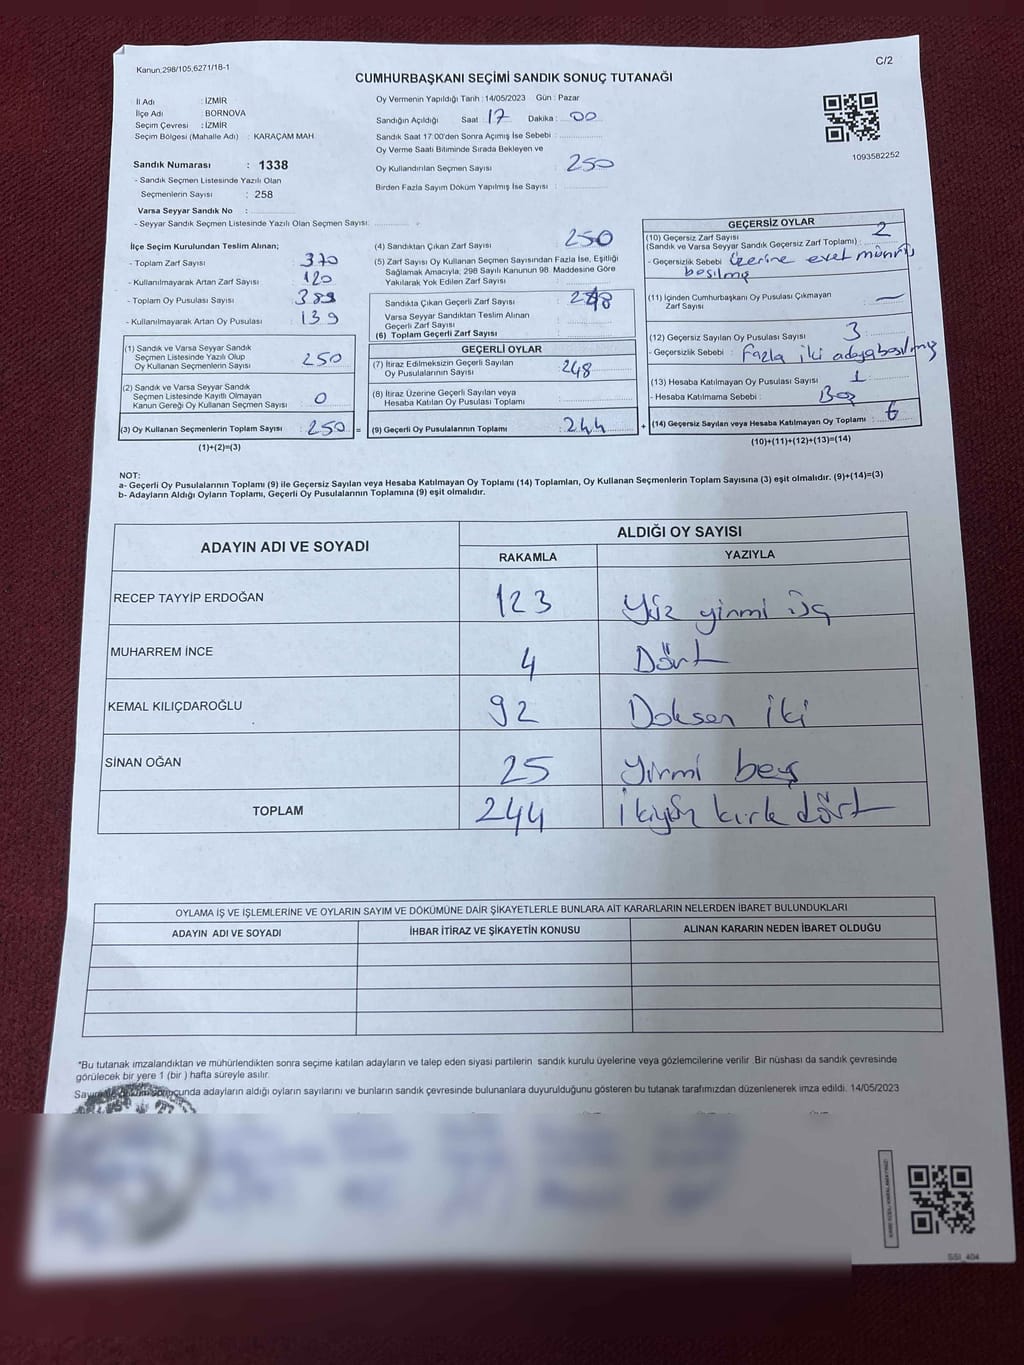 Kanun;298/105,6271/18-1
C/2
CUMHURBAŞKANI SEÇİMİ SANDIK SONUÇ TUTANAĞI
İl Adı : İZMİR
İlçe Adı BORNOVA
Seçim Çevresi : İZMİR
Seçim Bölgesi (Mahalle Adı) : KARAÇAM MAH.
Sandık Numarası : 1338
- Sandık Seçmen Listesinde Yazılı Olan
Seçmenlerin Sayısı : 258
Varsa Seyyar Sandık No :
- Seyyar Sandık Seçmen Listesinde Yazılı Olan Seçmen Sayısı:
Oy Vermenin Yapıldığı Tarih : 14/05/2023 Gün : Pazar
Sandığın Açıldığı Saat : 17 Dakika : 00
Sandık Saat 17:00'den Sonra Açılmış İse Sebebi :
Oy Verme Saati Bitiminde Sırada Bekleyen ve
Oy Kullandırılan Seçmen Sayısı : 250
Birden Fazla Sayım Döküm Yapılmış İse Sayısı :
1093582252
İlçe Seçim Kurulundan Teslim Alınan;
- Toplam Zarf Sayısı : 370
- Kullanılmayarak Artan Zarf Sayısı : 120
- Toplam Oy Pusulası Sayısı : 389
- Kullanılmayarak Artan Oy Pusulası : 139
(1) Sandık ve Varsa Seyyar Sandık
Seçmen Listesinde Yazılı Olup
Oy Kullanan Seçmen Sayısı : 250
(2) Sandık ve Varsa Seyyar Sandık
Seçmen Listesinde Kayıtlı Olmayan
Kanun Gereği Oy Kullanan Seçmen Sayısı : 0
(3) Oy Kullanan Seçmenlerin Toplam Sayısı : 250 =
(1)+(2)=(3)
(4) Sandıktan Çıkan Zarf Sayısı : 250
(5) Zarf Sayısı Oy Kullanan Seçmen Sayısından Fazla İse, Eşitliği
Sağlamak Amacıyla, 298 Sayılı Kanunun 98. Maddesine Göre
Yakılarak Yok Edilen Zarf Sayısı :
Sandıkta Çıkan Geçerli Zarf Sayısı : 248
Varsa Seyyar Sandıktan Teslim Alınan
Geçerli Zarf Sayısı :
(6) Toplam Geçerli Zarf Sayısı :
GEÇERLİ OYLAR
(7) İtiraz Edilmeksizin Geçerli Sayılan
Oy Pusulalarının Sayısı : 248
(8) İtiraz Üzerine Geçerli Sayılan veya
Hesaba Katılan Oy Pusulası Toplamı :
(9) Geçerli Oy Pusulalarının Toplamı : 244 +
GEÇERSİZ OYLAR
(10) Geçersiz Zarf Sayısı
(Sandık ve Varsa Seyyar Sandık Geçersiz Zarf Toplamı) : 2
- Geçersizlik Sebebi : üzerine evet mührü
basılmış
(11) İçinden Cumhurbaşkanı Oy Pusulası Çıkmayan
Zarf Sayısı : —
(12) Geçersiz Sayılan Oy Pusulası Sayısı : 3
- Geçersizlik Sebebi : Fazla iki adaya basılmış
(13) Hesaba Katılmayan Oy Pusulası Sayısı : 1
- Hesaba Katılmama Sebebi : Boş
(14) Geçersiz Sayılan veya Hesaba Katılmayan Oy Toplamı : 6
(10)+(11)+(12)+(13)=(14)
NOT:
a- Geçerli Oy Pusulalarının Toplamı (9) ile Geçersiz Sayılan veya Hesaba Katılmayan Oy Toplamı (14) Toplamları, Oy Kullanan Seçmenlerin Toplam Sayısına (3) eşit olmalıdır. (9)+(14)=(3)
b- Adayların Aldığı Oyların Toplamı, Geçerli Oy Pusulalarının Toplamına (9) eşit olmalıdır.
ADAYIN ADI VE SOYADI
ALDIĞI OY SAYISI
RAKAMLA YAZIYLA
RECEP TAYYİP ERDOĞAN 123 Yüz yirmi üç
MUHARREM İNCE 4 Dört
KEMAL KILIÇDAROĞLU 92 Doksan iki
SİNAN OĞAN 25 Yirmi beş
TOPLAM 244 İkiyüz kırk dört
OYLAMA İŞ VE İŞLEMLERİNE VE OYLARIN SAYIM VE DÖKÜMÜNE DAİR ŞİKAYETLERLE BUNLARA AİT KARARLARIN NELERDEN İBARET BULUNDUKLARI
ADAYIN ADI VE SOYADI İHBAR İTİRAZ VE ŞİKAYETİN KONUSU ALINAN KARARIN NEDEN İBARET OLDUĞU
*Bu tutanak imzalandıktan ve mühürlendikten sonra seçime katılan adayların ve talep eden siyasi partilerin sandık kurulu üyelerine veya gözlemcilerine verilir. Bir nüshası da sandık çevresinde
görülecek bir yere 1 (bir ) hafta süreyle asılır.
adayların aldığı oyların sayılarını ve bunların sandık çevresinde bulunanlara duyurulduğunu gösteren bu tutanak tarafımızdan düzenlenerek imza edildi. 14/05/2023
SSI_404